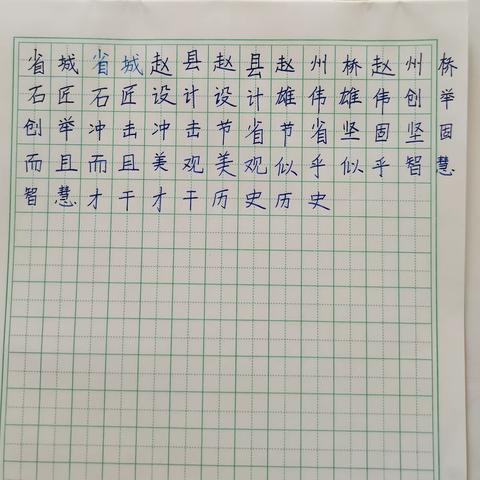 省城省城赵县赵县赵州桥赵州桥
石匠石匠设计设计雄伟雄伟创举
创举冲击冲击节省节省坚固坚固
而且而且美观美观似乎似乎智慧
智慧才干才干历史历史